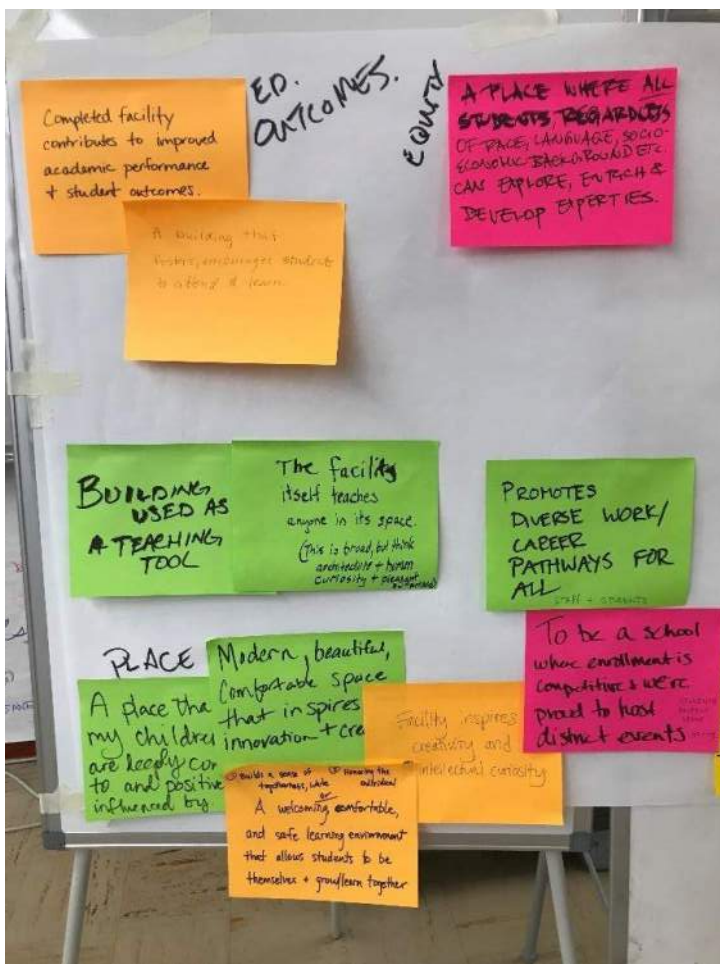 ED.
OUTCOMES.
Completed facility
contributes to improved
academic performance
+ student outcomes.
A building that
fosters, encourages student
to attend & learn.
EQUITY
A PLACE WHERE ALL
STUDENTS REGARDLESS
OF RACE, LANGUAGE, SOCIO-
ECONOMIC BACKGROUND ETC.
CAN EXPLORE, ENRICH &
DEVELOP EXPERTIES.
BUILDING
USED AS
A TEACHING
TOOL
The facility
itself teaches
anyone in its space.
(This is broad, but think
architecture + human
curiosity + pleasant
PROMOTES
DIVERSE WORK/
CAREER
PATHWAYS FOR
ALL
STAFF + STUDENTS
PLACE
A place tha
my childre
are deeply co
to and positive
influenced by
Modern, beautiful,
comfortable space
that inspires
innovation + crea
Facility inspires
creativity and
intellectual curiosity
To be a school
where enrollment is
competitive & we're
proud to host
district events
① Builds a sense of
togetherness, while
② Honoring the
individual
or
A welcoming, comfortable,
and safe learning environment
that allows students to be
themselves + grow/learn together